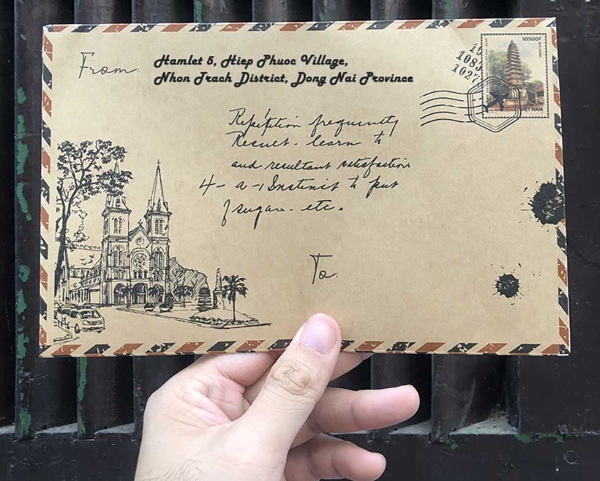 From:
Hamlet 5, Hiep Phuoc Village,
Nhon Trach District, Dong Nai Province
10500đ
1083
1027
Repetition frequently
Result - learn to
and resultant satisfaction
4 - a - Instinct to put
f sugar. etc.
To: